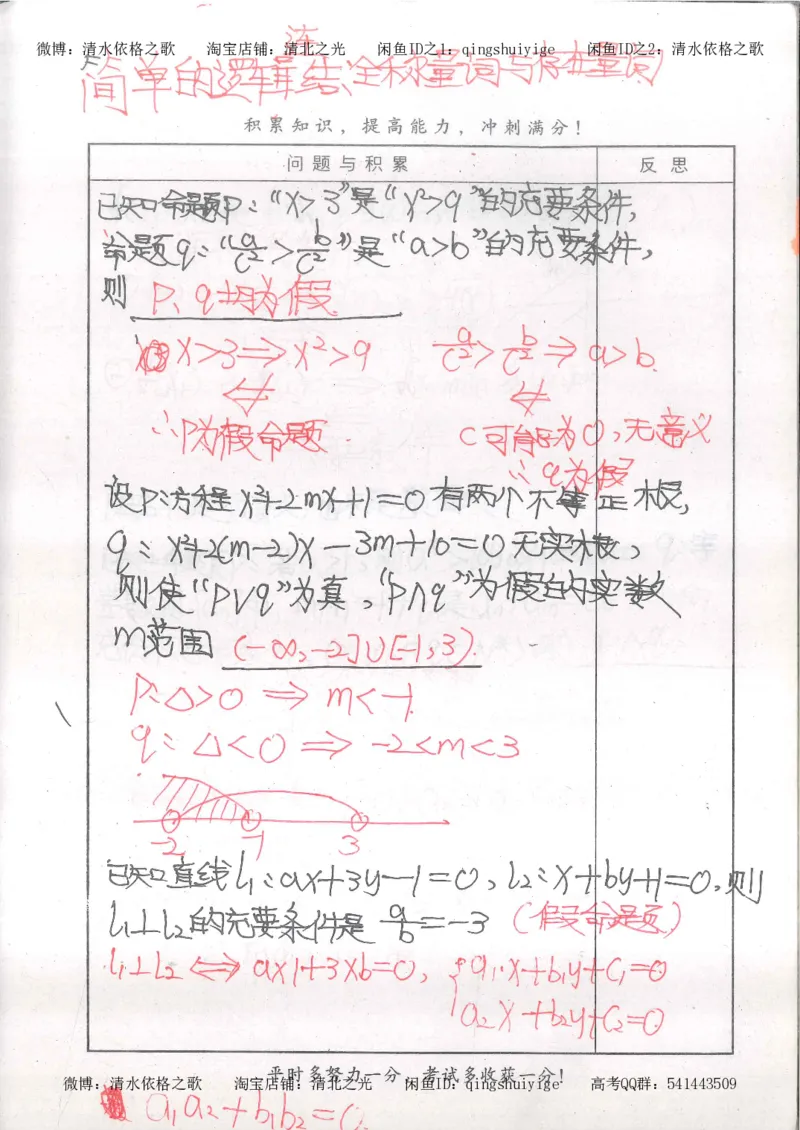 微博：清水依格之歌 淘宝店铺：清北之光 闲鱼ID之1：qingshuiyige 闲鱼ID之2：清水依格之歌
连
简单的逻辑结、全称量词与存在量词
积累知识，提高能力，冲刺满分！
问题与积累 反思
已知命题p：“x>3”是“x²>9”的充要条件，
命题q：“a/c²>b/c²”是“a>b”的充要条件，
则 p、q均为假
x>3⟹x²>9 a/c²>b/c²⇒a>b.
⇍ ⇍
∴p为假命题. c可能为0，无意义
∴q为假
设p：方程x²+2mx+1=0有两个不等正根，
q：x²+2(m-2)x-3m+10=0无实根，
则使“p∨q”为真，“p∧q”为假的实数
m范围 (-∞,-2]∪[-1,3).
p：△>0⟹m<-1
q：△<0⟹-2<m<3
-2 -1 3
已知直线l₁：ax+3y-1=0，l₂：x+by+1=0，则
l₁⊥l₂的充要条件是a/b=-3（假命题）
l₁⊥l₂⟺a×1+3×b=0，{a₁x+b₁y+c₁=0
a₂x+b₂y+c₂=0
平时多努力一分，考试多收获一分！
微博：清水依格之歌 淘宝店铺：清北之光 闲鱼ID：qingshuiyige 高考QQ群：541443509
a₁a₂+b₁b₂=0